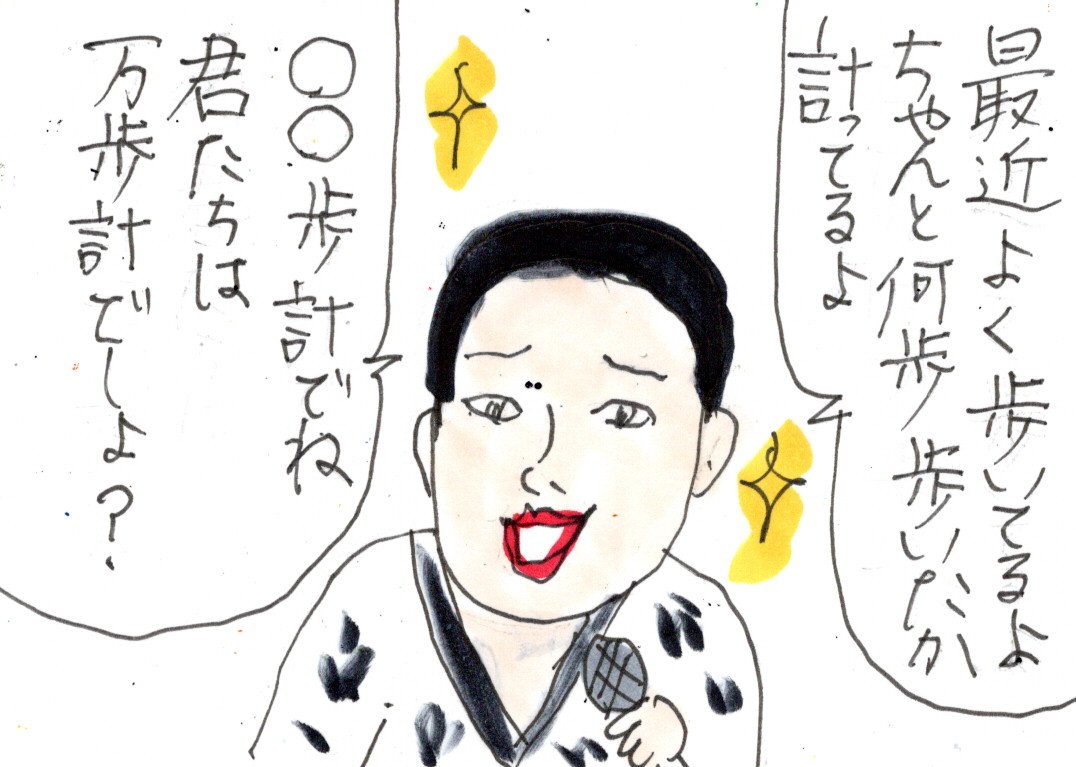 最近よく歩いてるよ
ちゃんと何歩歩いたか
計ってるよ
○○歩計でね
君たちは
万歩計でしょ？